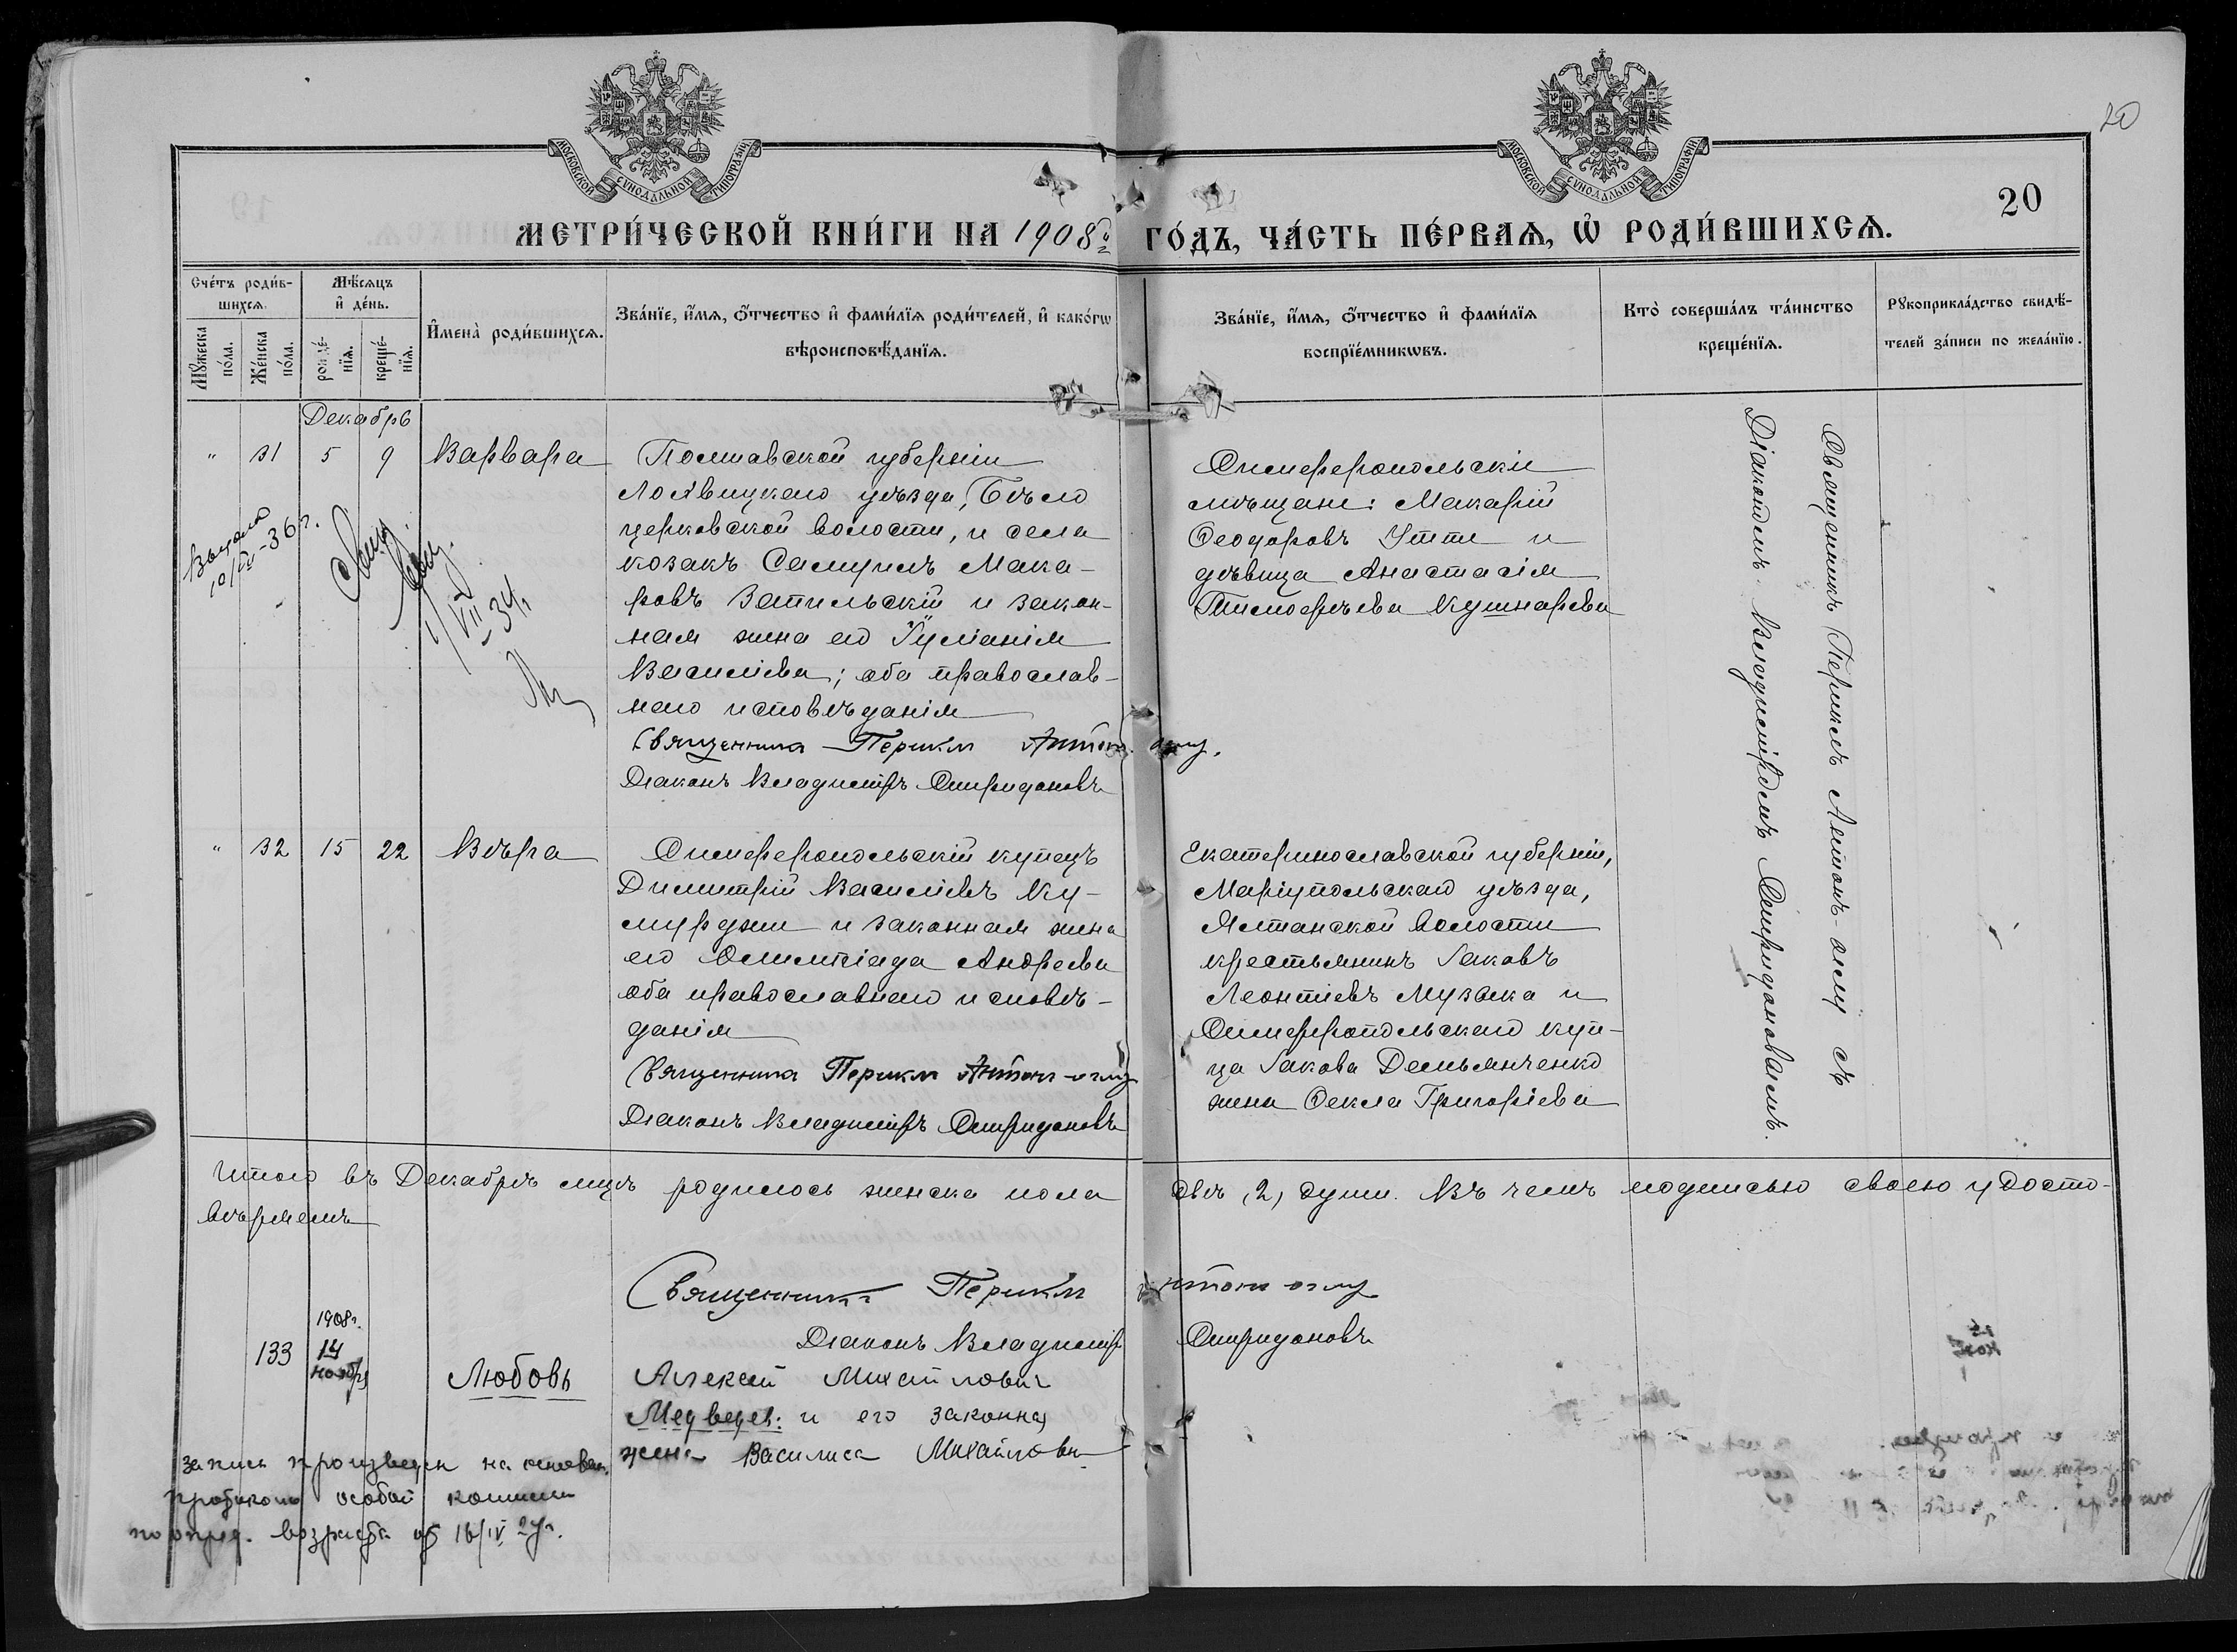 20
МОСКОВСКОЙ СѴНОДАЛЬНОЙ ТИПОГРАФІИ
МОСКОВСКОЙ СѴНОДАЛЬНОЙ ТИПОГРАФІИ
20
МЕТРИ́ЧЕСКОЙ КНИ́ГИ НА 1908й ГО́ДЪ, ЧА́СТЬ ПЕ́РВАѦ, Ѡ҆ РОДИ́ВШИХСѦ.
Сче́тъ роди́в-
шихсѧ.
Мꙋ́жеска по́ла.
Же́нска по́ла.
Мѣ́сѧцъ
и҆ де́нь.
рожде́нїѧ.
креще́нїѧ.
И҆мена̀ роди́вшихсѧ.
Зва́нїе, и҆́мѧ, ѻ҆́тчество и҆ фами́лїѧ роди́телей, и҆ како́гѡ
вѣроисповѣ́данїѧ.
Зва́нїе, и҆́мѧ, ѻ҆́тчество и҆ фами́лїѧ
воспрїе́мникѡвъ.
Кто̀ соверша́лъ та́инство
креще́нїѧ.
Рꙋкоприкла́дство свидѣ́-
телей за́писи по жела́нїю.
Декабрь
" 31 5 9 Варвара
Полтавской губерніи
Лохвицкаго уѣзда, Бѣло
церковской волости, и села
козакъ Самуилъ Мака-
ровъ Запильскій и закон-
ная жена его Іуліанія
Василіева; оба православ-
наго исповѣданія
Священникъ Периклъ Антон-оглу.
Діаконъ Владиміръ Спиридоновъ
Симферопольскіе
мѣщане: Макарій
Ѳеодоровъ Утте и
дѣвица Анастасія
Тимоѳѣева Кушнарева
Священникъ Периклъ Антонъ-оглу съ
Діакономъ Владиміромъ Спиридоновымъ.
Выдано
10/IV-36г.
1/VII-34г
" 32 15 22 Вѣра
Симферопольскій купецъ
Димитрій Василіевъ Ку-
мурджи и законная жена
его Олимпіада Андреева
оба православнаго исповѣ-
данія
Священникъ Периклъ Антон-оглу
Діаконъ Владиміръ Спиридоновъ
Екатеринославской губерніи,
Маріупольскаго уѣзда,
Ялтанской волости
крестьянинъ Іаковъ
Леонтіевъ Музыка и
Симферопольскаго куп-
ца Іакова Демьянченко
жена Ѳекла Григоріева
Итого въ Декабрѣ мцѣ родилось женска пола двѣ (2) души. Въ чемъ подписью своею удосто-
вѣряемъ
Священникъ Периклъ Антон-оглу
Діаконъ Владиміръ Спиридоновъ
133 1908г. 14 ноября Любовь
Алексей Михайлович
Медведев: и его законная
жена Василиса Михайловн
запись произведен на основан.
протокола особой комиссии
по опред. возраста от 16/IV 24г.